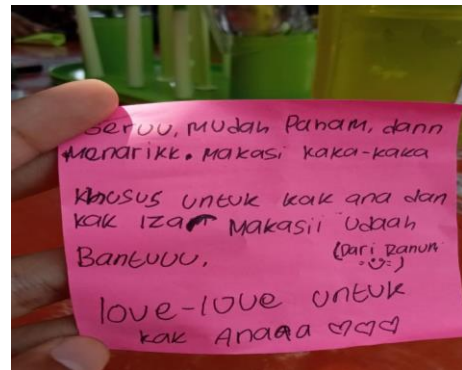 Seruu, mudah Paham, dann
menarikk. makasi kaka-kaka
khusus untuk kak ana dan
kak Iza makasii udaah
Bantuuu.
(Dari Ranum
love-love untuk
kak Anaaa ♡♡♡